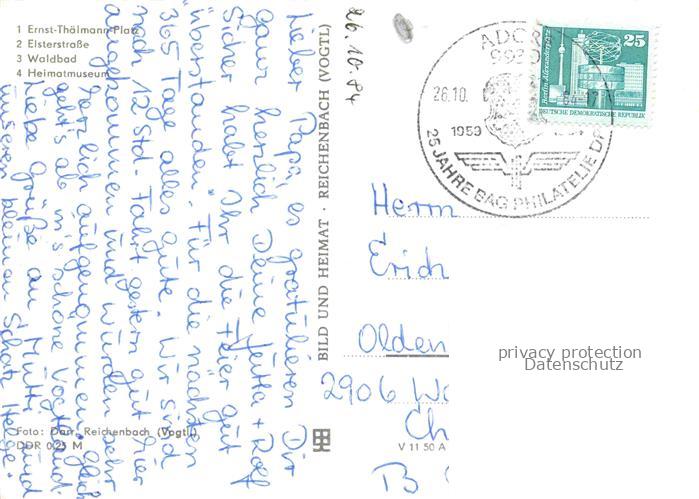 1 Ernst-Thälmann-Platz
2 Elsterstraße
3 Waldbad
4 Heimatmuseum
26.10.84
Lieber Papa, es gratulieren Dir
ganz herzlich Deine Jutta + Rolf
Sicher habt Ihr die Feier gut
überstanden. Für die nächsten
365 Tage alles Gute. Wir sind
nach 12 Std. Fahrt gestern gut hier
angekommen und wurden sehr
herzlich aufgenommen. Gleich
geht's ab in's schöne Vogtland.
Liebe Grüße an Mutti und
unseren kleinen Schatz Helge.
Foto: Darr, Reichenbach (Vogtl.)
DDR 0,25 M
BILD UND HEIMAT · REICHENBACH (VOGTL)
V 11 50 A
ADOR
9930
26.10.
1959
25 JAHRE BAG PHILATELIE DR
25
Berlin, Alexanderplatz
DEUTSCHE DEMOKRATISCHE REPUBLIK
Herrn
Erich
Olden
2906 Wa
Ch
privacy protection
Datenschutz